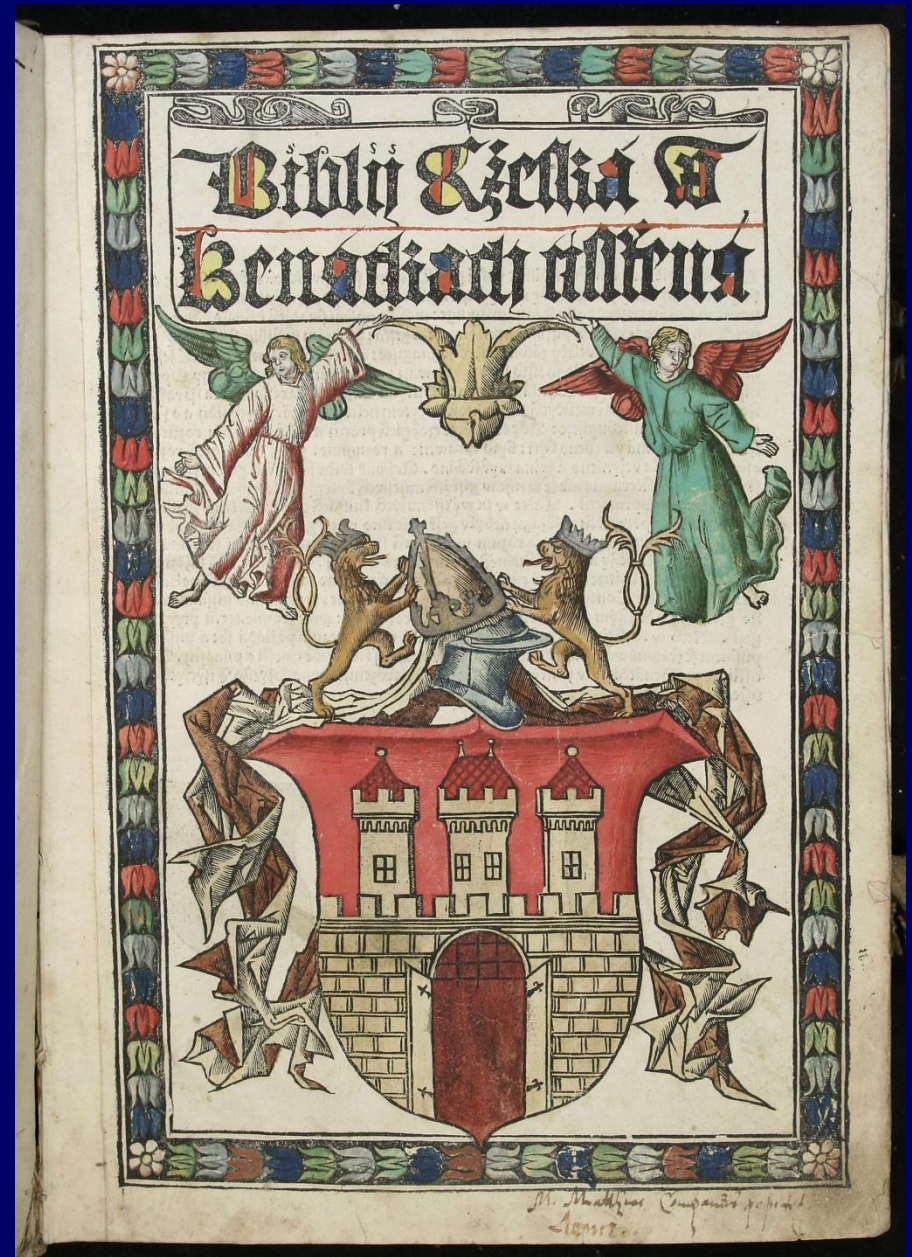 Biblij Cżeská W
Benátkach tiſſtená
M. Matthias